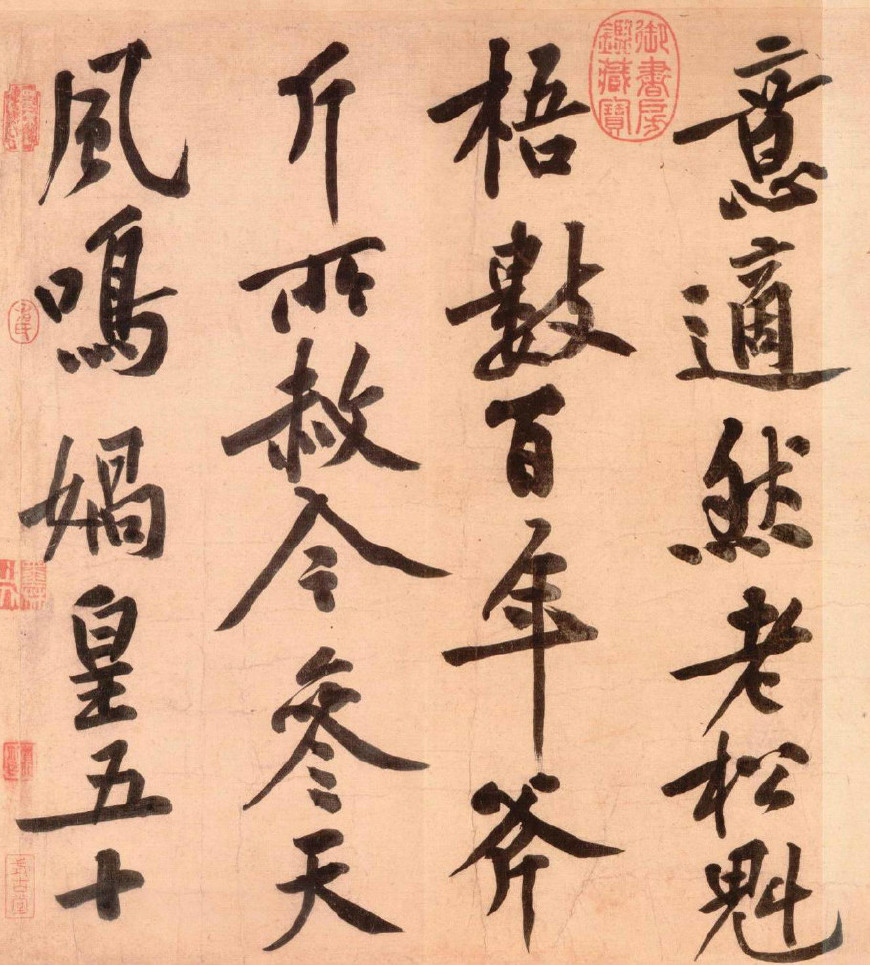 意適然老松魁
梧數百年斧
斤所赦今參天
風鳴媧皇五十
御書房鑑藏寶